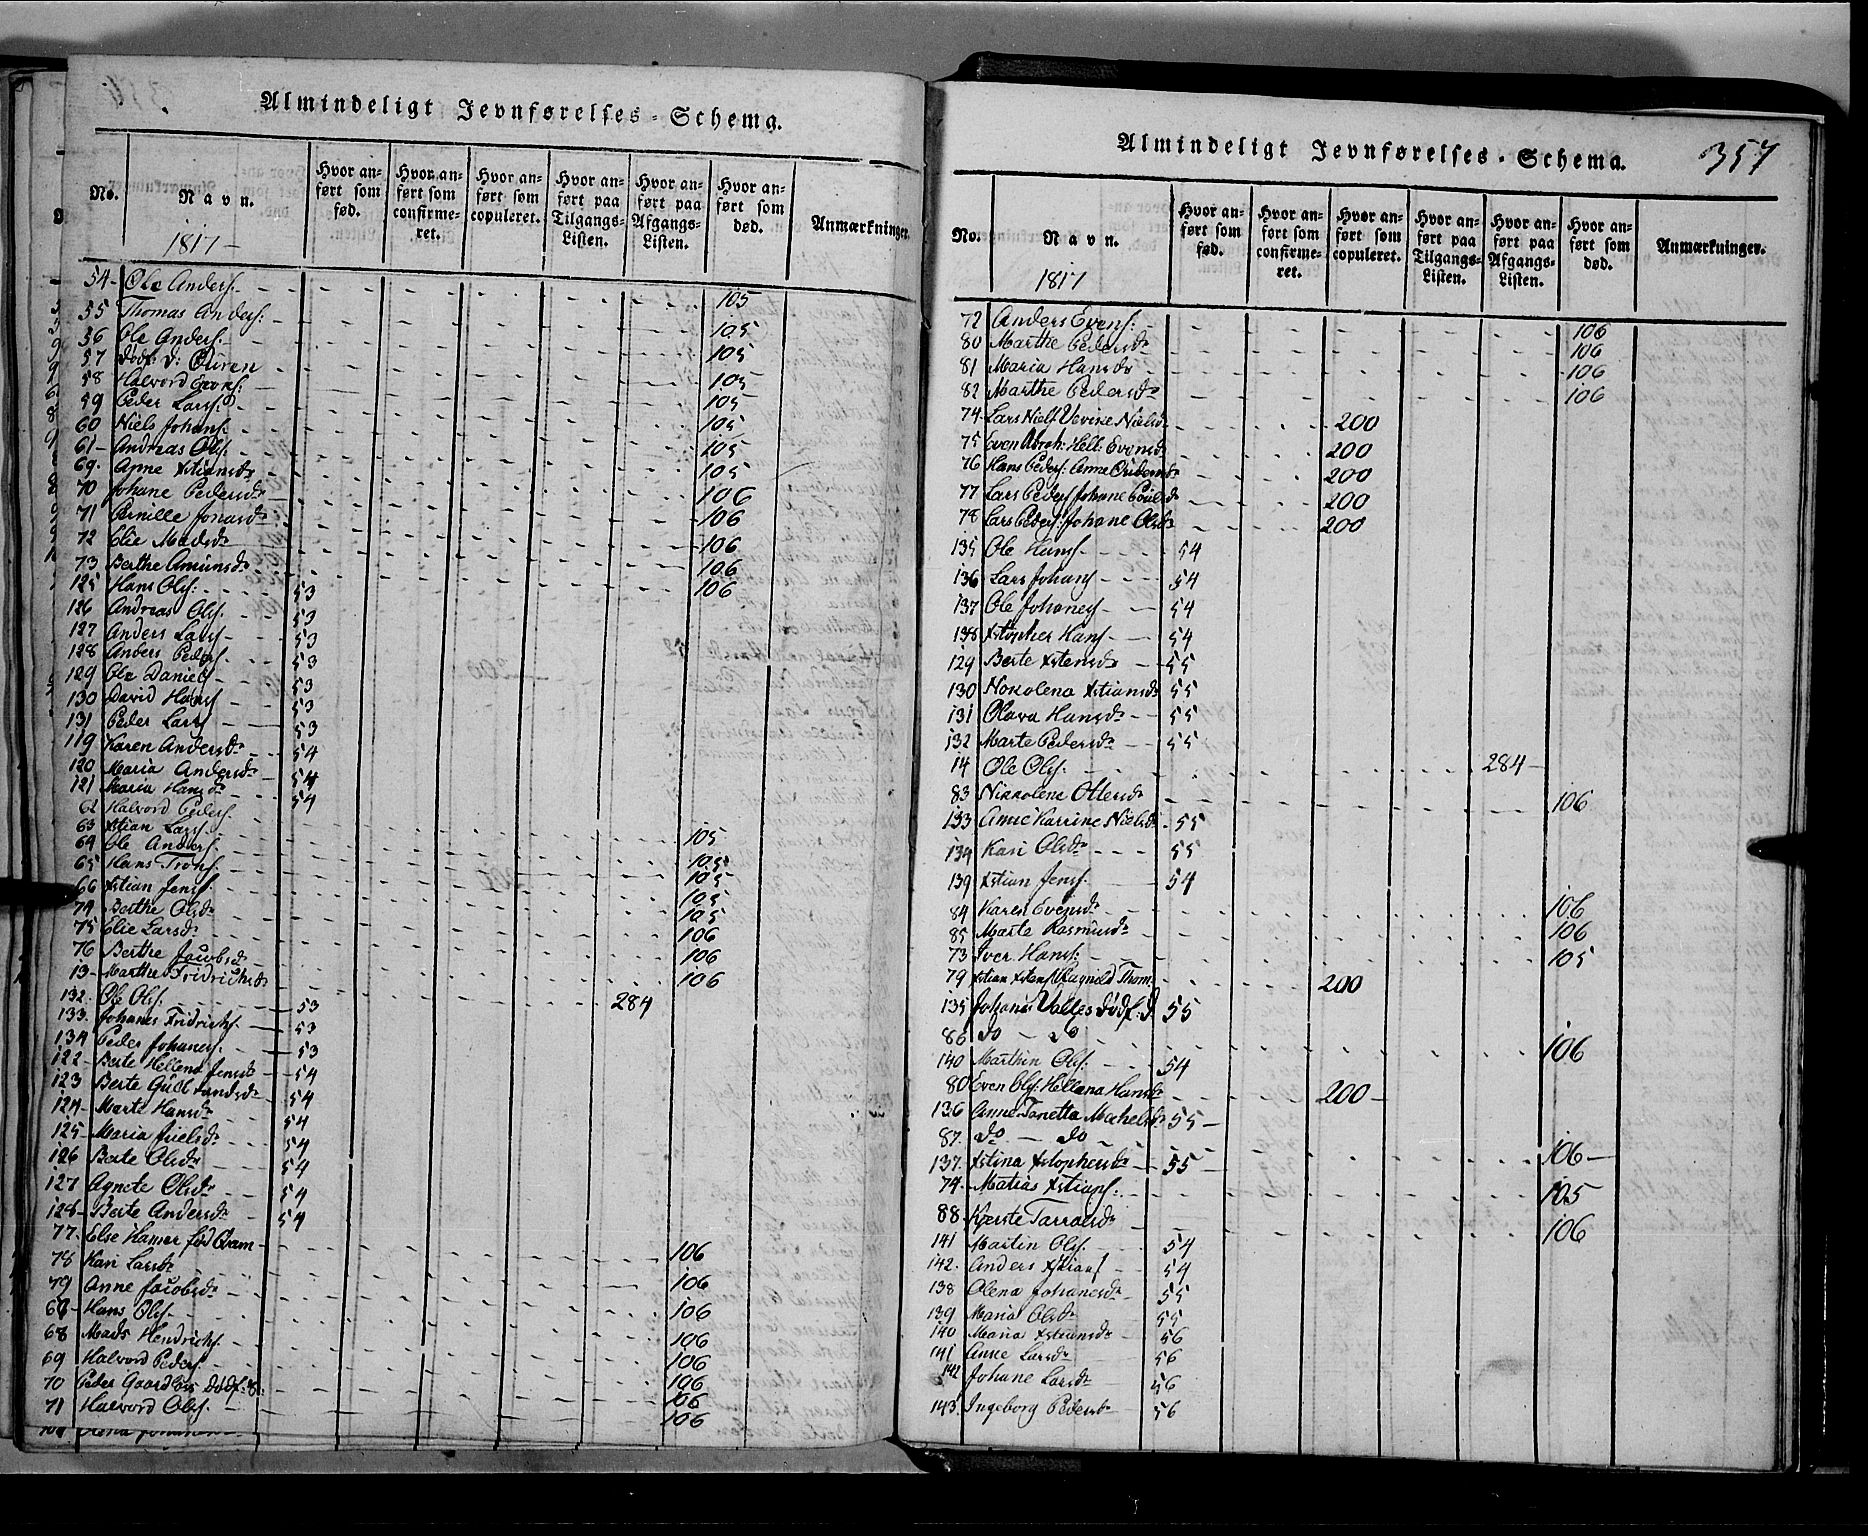 Almindeligt Jevnførelses-Schema.
No. Navn. Hvor anført som fød. Hvor anført som confirmeret. Hvor anført som copuleret. Hvor anført paa Tilgangs-Listen. Hvor anført paa Afgangs-Listen. Hvor anført som død. Anmærkninger.
1817
54 Ole Anders: 105
55 Thomas Anders: 105
56 Ole Anders: 105
57 Dødf: D: 105
58 Halvord Evens: 105
59 Peder Lars: 105
60 Niels Johans: 105
61 Andreas Ols: 105
69 Anne Xstiansdr 106
70 Johane Pedersdr 106
71 Pernille Jonasdr 106
72 Elie Madsdr 106
73 Berthe Amunsdr 106
125 Hans Ols: 53
126 Andreas Ols: 53
127 Anders Lars 53
128 Anders Peders 53
129 Ole Daniels 53
130 David Hans 53
131 Peder Lars 53
119 Karen Andersdr 54
120 Maria Andersdr 54
121 Maria Hansdr 54
62 Halvord Peders: 105
63 Xstian Lars 105
64 Ole Anders: 105
65 Hans Trons: 105
66 Xstian Jens: 105
74 Berthe Olsdr 106
75 Elie Larsdr 106
76 Berthe Jacobsdr 106
13 Marthe Fridrichsdr 284
132 Ole Ols: 53
133 Johanes Fridrichs: 53
134 Peder Johanes 53
122 Berte Hellena Jensdr 54
123 Berte Gudbrandsdr 54
124 Marte Hansdr 54
125 Maria Juelsdr 54
126 Berte Olsdr 54
127 Agnete Olsdr 54
128 Berte Andersdr 54
77 Else Hamer fød Qvam 106
78 Kari Larsdr 106
79 Anne Jacobsdr 106
67 Hans Ols: 106
68 Mads Hendrichs: 106
69 Halvord Peders: 106
70 Peder Gaardløs Dødf: 106
71 Halvord Ols: 106
Almindeligt Jevnførelses-Schema. 357
No. Navn. Hvor anført som fød. Hvor anført som confirmeret. Hvor anført som copuleret. Hvor anført paa Tilgangs-Listen. Hvor anført paa Afgangs-Listen. Hvor anført som død. Anmærkninger.
1817
72 Anders Evens: 106
80 Marthe Pedersdr 106
81 Maria Hansdr 106
82 Marthe Pedersdr 106
74 Lars Niels Nielsdr 200
75 Even Abrah: Hell: Evensdr 200
76 Hans Peders: Anne 200
77 Lars Peders Johane Poulsdr 200
78 Lars Peders: Johane Olsdr 200
135 Ole Hans 54
136 Lars Johans 54
137 Ole Johanes 54
138 Xstopher Hans 54
129 Berte Xstensdr 55
130 Nokolena Xstiansdr 55
131 Olava Hansdr 55
132 Marte Pedersdr 55
14 Ole Ols: 284
83 Nikkolena Ottersdr 106
133 Anne Karrine Nielsdr 55
134 Kari Olsdr 55
139 Xstian Jens: 54
84 Karen Evensdr 106
85 Marte Rasmusdr 106
73 Iver Hans: 105
79 Xstian Xstens Ragnild Thom 200
135 Johanes Valles Dødf: D. 55
86 do — do 106
140 Marthin Ols: 54
80 Even Ols: Hellana Hansdr 200
136 Anne Tanetta Mikelsdr 55
87 do — do 106
137 Xstina Xstophersdr 55
74 Matias Xstians: 105
88 Kjerste Tarralsdr 106
141 Martin Ols: 54
142 Anders Xstians 54
138 Olena Johanesdr 55
139 Maria Olsdr 55
140 Maria Xstiansdr 56
141 Anne Larsdr 56
142 Johane Larsdr 56
143 Ingeborg Pedersdr 56